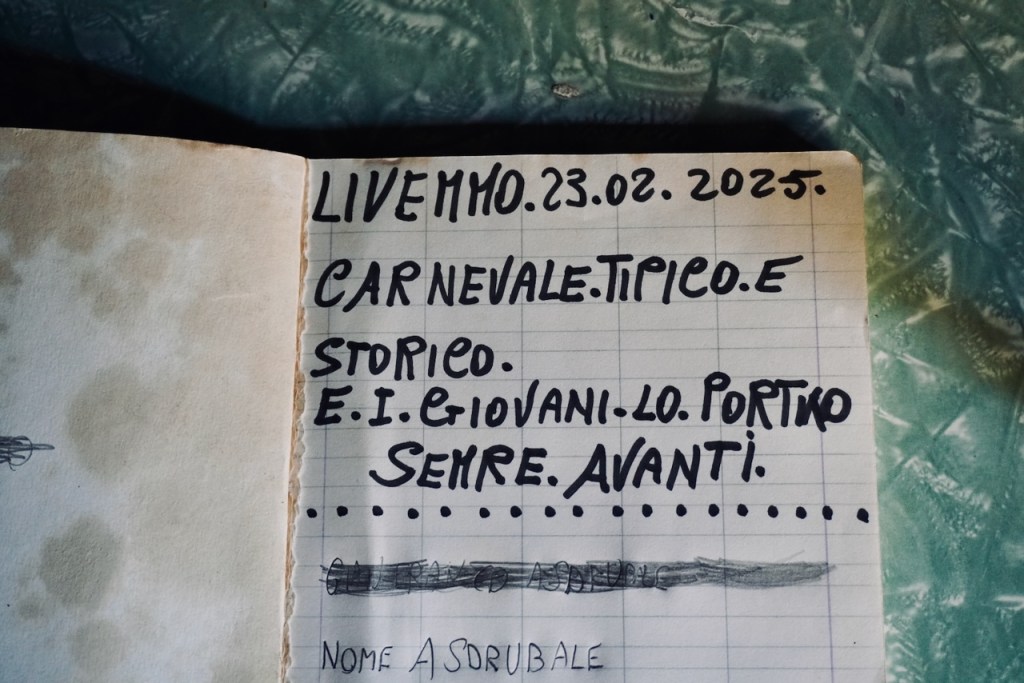 LIVEMMO.23.02.2025.
CARNEVALE.TIPICO.E
STORICO.
E.I.GIOVANI.LO.PORTINO
SEMRE.AVANTI.
ASDRUBALE
NOME ASDRUBALE